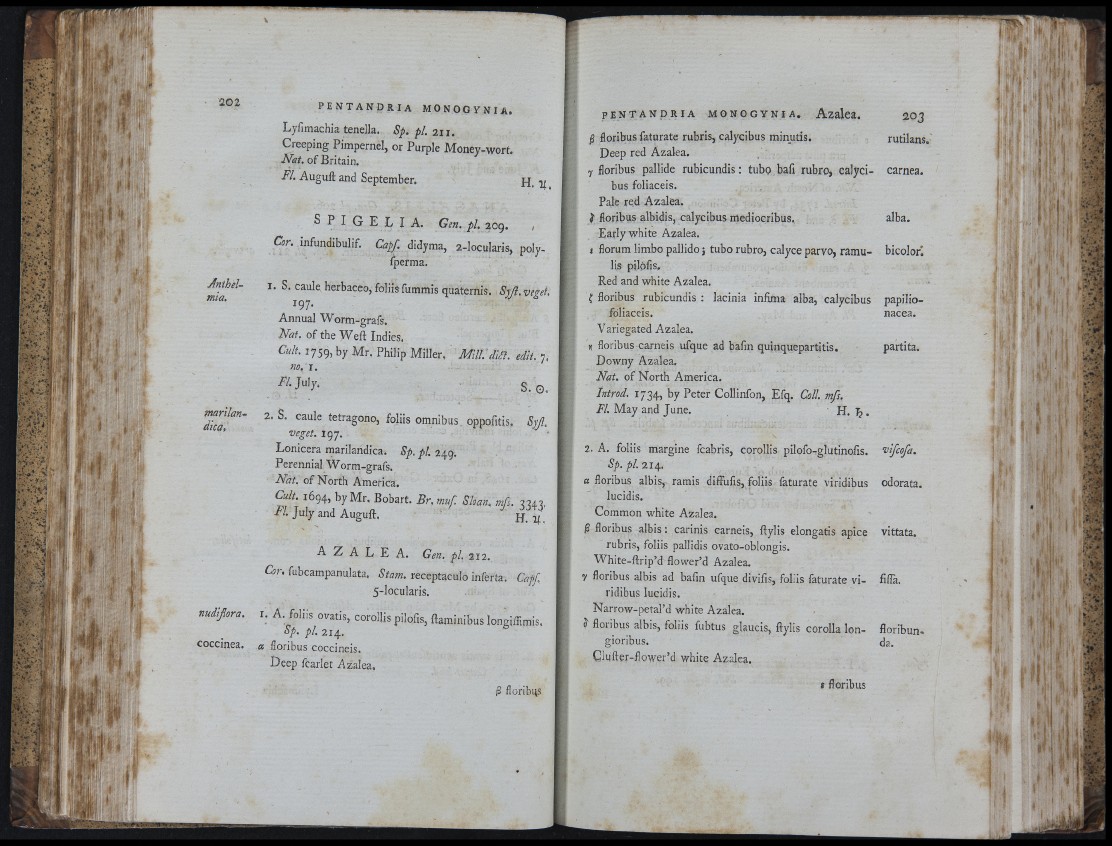 202
PENTANDRIA MONOGYNIA.
Lyſimachia tenella. Sp. pl. 211.
Creeping Pimpernel, or Purple Money-wort.
Nat. of Britain.
Fl. Auguſt and September. H. ♃.
SPIGELIA. Gen. pl. 209.
Cor. infundibulif. Capſ. didyma, 2-locularis, poly-
ſperma.
Anthel-
mia.
1. S. caule herbaceo, foliis ſummis quaternis. Syſt. veget.
197.
Annual Worm-graſs.
Nat. of the Weſt Indies.
Cult. 1759, by Mr. Philip Miller. Mill. dict. edit. 7.
no. 1.
Fl. July. S. ☉.
marilan-
dica.
2. S. caule tetragono, foliis omnibus oppoſitis. Syſt.
veget. 197.
Lonicera marilandica. Sp. pl. 249.
Perennial Worm-graſs.
Nat. of North America.
Cult. 1694, by Mr. Bobart. Br. muſ. Sloan. mſſ. 3343.
Fl. July and Auguſt. H. ♃.
AZALEA. Gen. pl. 212.
Cor. ſubcampanulata. Stam. receptaculo inſerta. Capſ.
5-locularis.
nudiflora. 1. A. foliis ovatis, corollis piloſis, ſtaminibus longiſſimis.
Sp. pl. 214.
coccinea. α floribus coccineis.
Deep ſcarlet Azalea.
β floribus
PENTANDRIA MONOGYNIA. Azalea. 203
β floribus ſaturate rubris, calycibus minutis. rutilans.
Deep red Azalea.
γ floribus pallide rubicundis: tubo baſi rubro, calyci- carnea.
bus foliaceis.
Pale red Azalea.
δ floribus albidis, calycibus mediocribus. alba.
Early white Azalea.
ε florum limbo pallido; tubo rubro, calyce parvo, ramu- bicolor.
lis piloſis.
Red and white Azalea.
ζ floribus rubicundis: lacinia infima alba, calycibus papilio-
foliaceis. nacea.
Variegated Azalea.
η floribus carneis uſque ad baſin quinquepartitis. partita.
Downy Azalea.
Nat. of North America.
Introd. 1734, by Peter Collinſon, Eſq. Coll. mſſ.
Fl. May and June. H. ♄.
2. A. foliis margine ſcabris, corollis piloſo-glutinoſis. viſcoſa.
Sp. pl. 214.
α floribus albis, ramis diffuſis, foliis ſaturate viridibus odorata.
lucidis.
Common white Azalea.
β floribus albis: carinis carneis, ſtylis elongatis apice vittata.
rubris, foliis pallidis ovato-oblongis.
White-ſtrip'd flower'd Azalea.
γ floribus albis ad baſin uſque diviſis, foliis ſaturate vi- fiſſa.
ridibus lucidis.
Narrow-petal'd white Azalea.
δ floribus albis, foliis ſubtus glaucis, ſtylis corolla lon- floribun-
gioribus. da.
Cluſter-flower'd white Azalea.
ε floribus